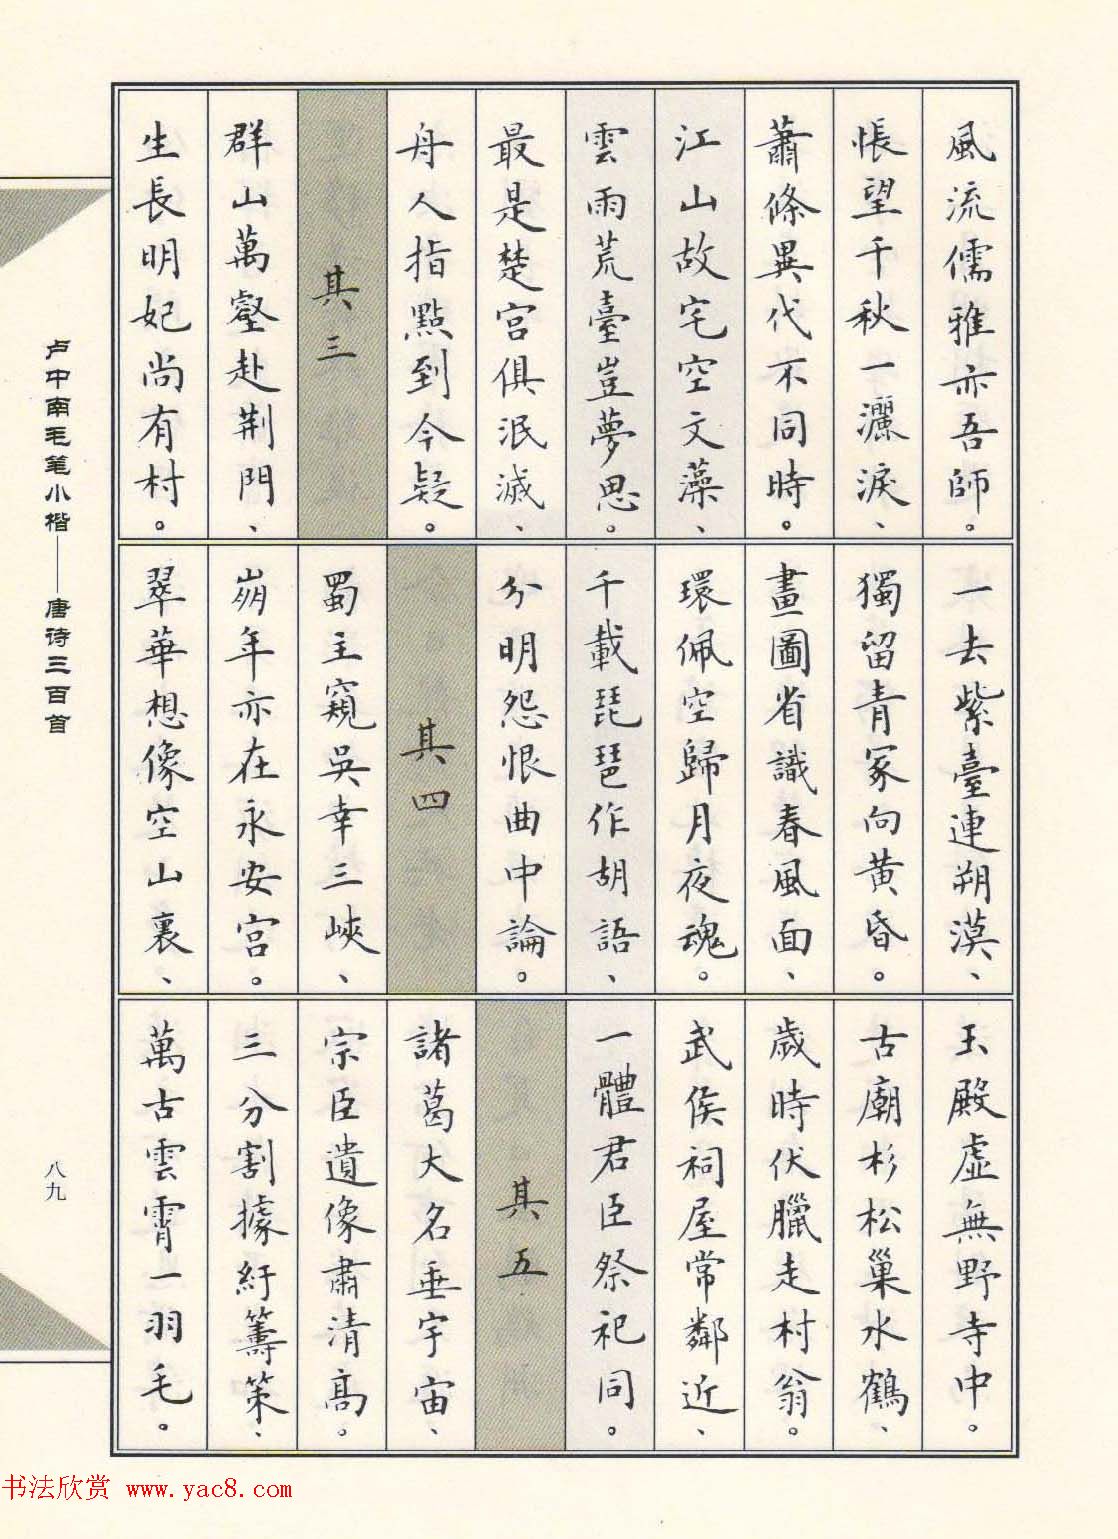 風流儒雅亦吾師。
悵望千秋一灑淚、
蕭條異代不同時。
江山故宅空文藻、
雲雨荒臺豈夢思。
最是楚宮俱泯滅、
舟人指點到今疑。
其三
群山萬壑赴荆門、
生長明妃尚有村。
一去紫臺連朔漠、
獨留青冢向黄昏。
畫圖省識春風面、
環佩空歸月夜魂。
千載琵琶作胡語、
分明怨恨曲中論。
其四
蜀主窺吳幸三峽、
崩年亦在永安宮。
翠華想像空山裏、
玉殿虛無野寺中。
古廟杉松巢水鶴、
歲時伏臘走村翁。
武侯祠屋常鄰近、
一體君臣祭祀同。
其五
諸葛大名垂宇宙、
宗臣遺像肅清高。
三分割據紆籌策、
萬古雲霄一羽毛。
卢中南毛笔小楷——唐诗三百首
八九
书法欣赏 www.yac8.com